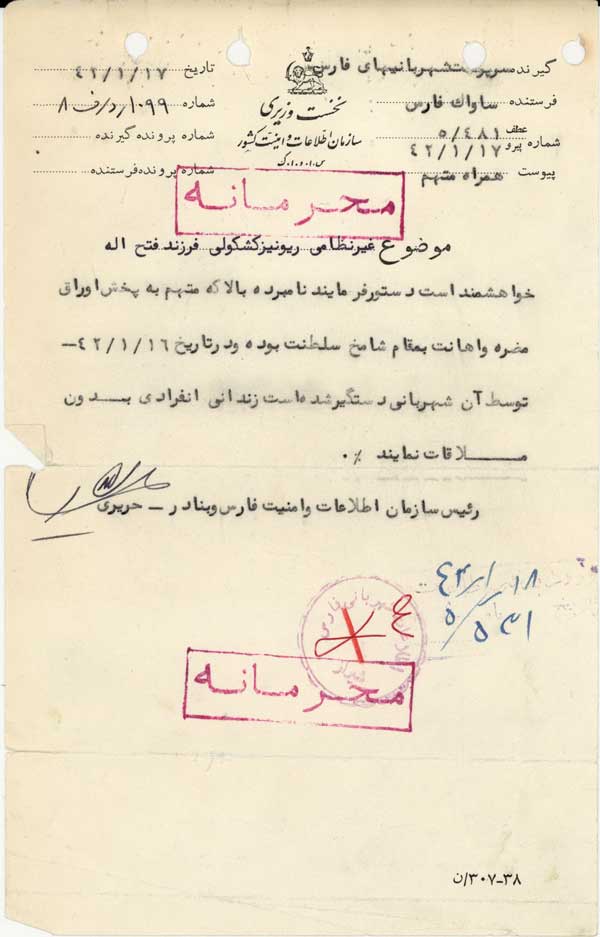 گیرنده سرپرست شهربانیهای فارس
فرستنده ساواک فارس
عطف ۵/۴۸۱
شماره پیرو ۴۲/۱/۱۷
پیوست همراه متهم
نخست وزیری
سازمان اطلاعات و امنیت کشور
س.ا.و.ا.ک
تاریخ ۴۲/۱/۱۷
شماره ۱۰۹۹/د/ف ۸
شماره پرونده گیرنده
شماره پرونده فرستنده
محرمانه
موضوع غیرنظامی ریونیز کشکولی فرزند فتح اله
خواهشمند است دستور فرمایند نامبرده بالا که متهم به پخش اوراق
مضره و اهانت بمقام شامخ سلطنت بوده و در تاریخ ۴۲/۱/۱۶–
توسط آن شهربانی دستگیر شده است زندانی انفرادی بدون
ملاقات نمایند ./.
رئیس سازمان اطلاعات و امنیت فارس و بنادر – حریری
۴۲/۱/۱۸
۵/۵۳۱
محرمانه
۳۰۷-۳۸/ن